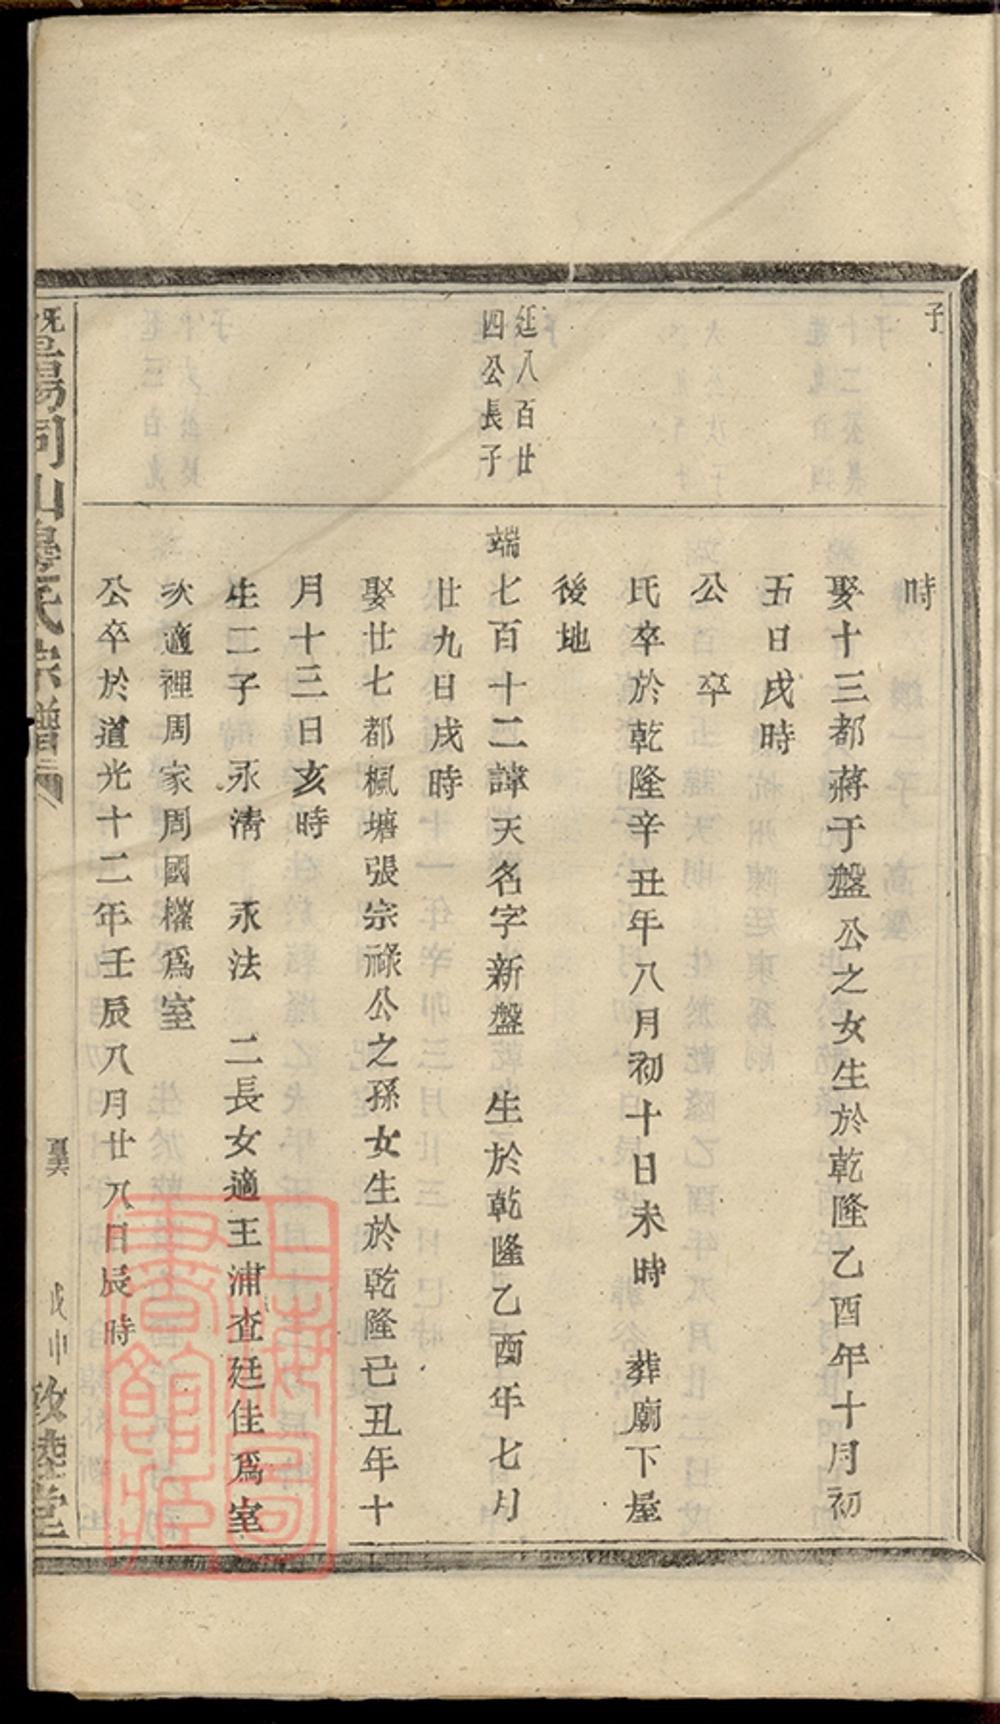 子
時
娶十三都蔣于盤公之女生於乾隆乙酉年十月初
五日戌時
公　卒
氏卒於乾隆辛丑年八月初十日未時　葬廟下屋
後地
廷八百廿
四公長子
端七百十二諱天名字新盤　生於乾隆乙酉年七月
廿九日戌時
娶廿七都楓塘張宗祿公之孫女生於乾隆己丑年十
月十三日亥時
生二子　永清　永法　二長女適王浦查廷佳爲室
次適裡周家周國權爲室
公卒於道光十二年壬辰八月廿八日辰時
暨陽同山邊氏宗譜
戊申
敦睦堂
上海圖
書館藏